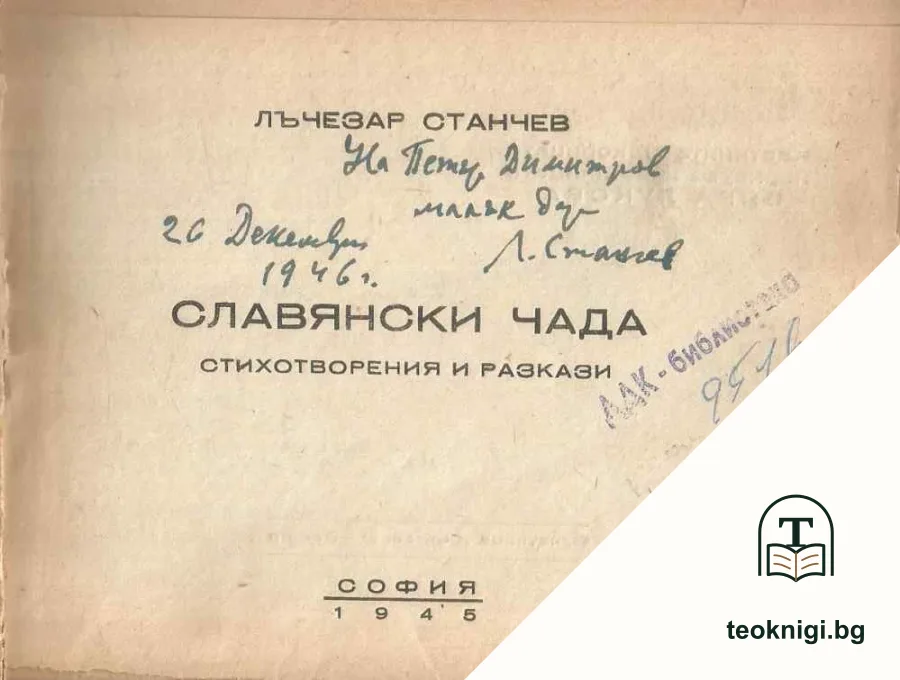 ЛЪЧЕЗАР СТАНЧЕВ
На Петър Димитров
26 Декември
Л. Станчев
1946 г.
СЛАВЯНСКИ ЧАДА
СТИХОТВОРЕНИЯ И РАЗКАЗИ
ДДК - библиотека
СОФИЯ
1945
T
teoknigi.bg